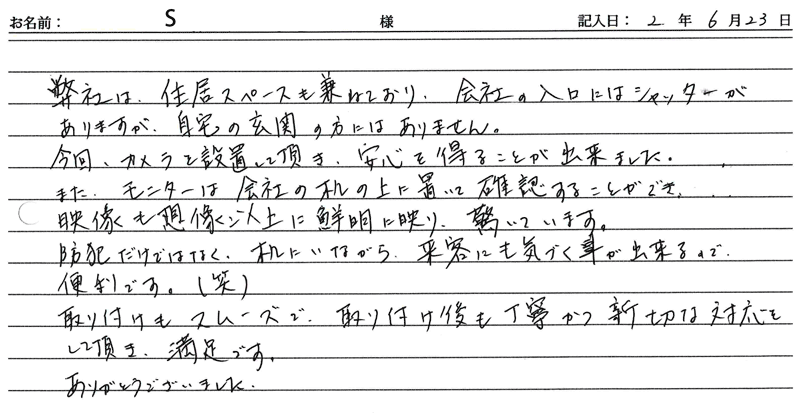 お名前: S 様 記入日: 2 年 6 月 23 日
弊社は、住居スペースも兼ねており、会社の入口にはシャッターが
ありますが、自宅の玄関の方にはありません。
今回、カメラを設置して頂き、安心を得ることが出来ました。
また、モニターは会社の机の上に置いて確認することができ、
映像も想像以上に鮮明に映り、驚いています。
防犯だけではなく、机にいながら、来客にも気づく事が出来るので、
便利です。(笑)
取り付けもスムーズで、取り付け後も丁寧かつ新切な対応を
して頂き、満足です。
ありがとうございました。